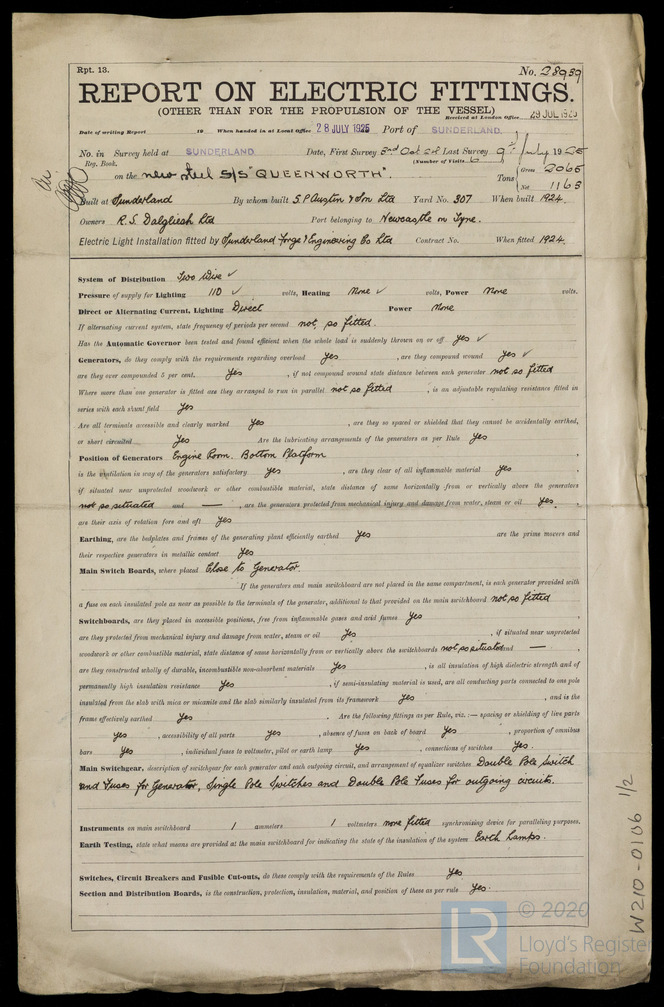 Rpt. 13.
No. 28939
REPORT ON ELECTRIC FITTINGS.
(OTHER THAN FOR THE PROPULSION OF THE VESSEL)
Received at London Office 29 JUL 1925
Date of writing Report 19 When handed in at Local Office 28 JULY 1925 Port of SUNDERLAND.
No. in Survey held at SUNDERLAND Date, First Survey 2nd Oct 24 Last Survey 9th July 1925
Reg. Book. (Number of Visits 6
on the new steel S/S "QUEENWORTH". Tons { Gross 2065
Net 1163
Built at Sunderland By whom built S.P. Austin & Son Ltd Yard No. 307 When built 1924.
Owners R.S. Dalgliesh Ltd Port belonging to Newcastle on Tyne.
Electric Light Installation fitted by Sunderland Forge & Engineering Co Ltd Contract No. When fitted 1924.
System of Distribution Two Wire ✓
Pressure of supply for Lighting 110 ✓ volts, Heating None ✓ volts, Power None volts.
Direct or Alternating Current, Lighting Direct Power None
If alternating current system, state frequency of periods per second not so fitted.
Has the Automatic Governor been tested and found efficient when the whole load is suddenly thrown on or off Yes ✓
Generators, do they comply with the requirements regarding overload Yes , are they compound wound Yes ✓
are they over compounded 5 per cent. Yes , if not compound wound state distance between each generator not so fitted
Where more than one generator is fitted are they arranged to run in parallel not so fitted , is an adjustable regulating resistance fitted in
series with each shunt field Yes
Are all terminals accessible and clearly marked Yes , are they so spaced or shielded that they cannot be accidentally earthed,
or short circuited Yes Are the lubricating arrangements of the generators as per Rule Yes
Position of Generators Engine Room. Bottom Platform
is the ventilation in way of the generators satisfactory Yes , are they clear of all inflammable material Yes ,
if situated near unprotected woodwork or other combustible material, state distance of same horizontally from or vertically above the generators
not so situated and — , are the generators protected from mechanical injury and damage from water, steam or oil Yes. ,
are their axis of rotation fore and aft Yes
Earthing, are the bedplates and frames of the generating plant efficiently earthed Yes are the prime movers and
their respective generators in metallic contact Yes
Main Switch Boards, where placed Close to Generator.
If the generators and main switchboard are not placed in the same compartment, is each generator provided with
a fuse on each insulated pole as near as possible to the terminals of the generator, additional to that provided on the main switchboard not so fitted
Switchboards, are they placed in accessible positions, free from inflammable gases and acid fumes Yes ,
are they protected from mechanical injury and damage from water, steam or oil Yes , if situated near unprotected
woodwork or other combustible material, state distance of same horizontally from or vertically above the switchboards not so situated and — ,
are they constructed wholly of durable, incombustible non-absorbent materials Yes , is all insulation of high dielectric strength and of
permanently high insulation resistance Yes , if semi-insulating material is used, are all conducting parts connected to one pole
insulated from the slab with mica or micanite and the slab similarly insulated from its framework Yes , and is the
frame effectively earthed Yes . Are the following fittings as per Rule, viz. :— spacing or shielding of live parts
Yes , accessibility of all parts Yes , absence of fuses on back of board Yes , proportion of omnibus
bars Yes , individual fuses to voltmeter, pilot or earth lamp Yes , connections of switches Yes.
Main Switchgear, description of switchgear for each generator and each outgoing circuit, and arrangement of equalizer switches Double Pole Switch
and Fuses for Generator, Single Pole Switches and Double Pole Fuses for outgoing circuits.
Instruments on main switchboard 1 ammeters 1 voltmeters none fitted synchronizing device for paralleling purposes.
Earth Testing, state what means are provided at the main switchboard for indicating the state of the insulation of the system Earth Lamps.
Switches, Circuit Breakers and Fusible Cut-outs, do these comply with the requirements of the Rules Yes
Section and Distribution Boards, is the construction, protection, insulation, material, and position of these as per rule Yes.
W210-0106 1/2
LR
© 2020
Lloyd's Register
Foundation